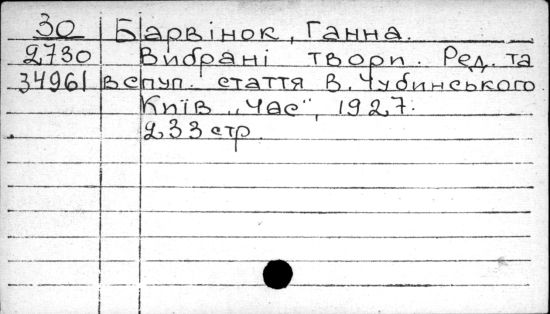 30 Барвінок, Ганна.
2730 Вибрані твори. Ред. та
34961 вступ. стаття В. Чубинського.
Київ „Час", 1927.
233 стр.